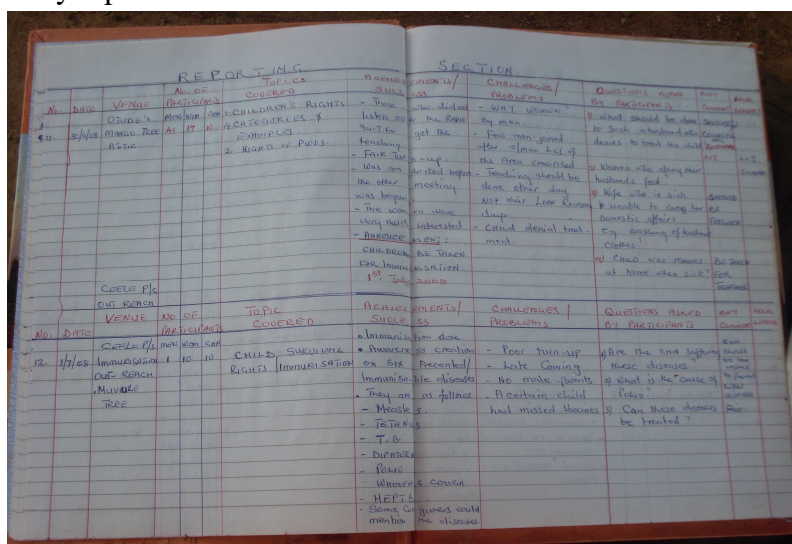 REPORTING SECTION
No. DATE VENUE No. OF PARTICIPANTS TOPICS COVERED ACHIEVEMENTS/ SUCCESS CHALLENGES/ PROBLEMS QUESTIONS ASKED BY PARTICIPANTS ANY
MEN WOM CHN
11. 30/6/08 MANGO TREE 17
1. CHILDREN'S RIGHTS
CATEGORIES &
EXAMPLES
2. RIGHTS OF PWDS.
- Those who did not
listen over the Radio
got the
teaching
- Fair Turn-up
- Was conducted before
the other meeting
was begun
- The women were
very much interested
- ANNOUNCEMENT:
CHILDREN BE TAKEN
FOR IMMUNISATION
1st July 2008
- WHY women
by men.
- Few men joined
after c/man LCI of
the Area convinced
- Teaching should be
done other day
Not their LOAN
days
- Child denial treat-
ment.
1) What should be done
to such a husband who
denies to treat the child
2) Women who deny their
husbands food?
3) Wife who is sick
& unable to comp her
Domestic affairs
e.g. washing of husband
clothes?
4) CHILD who
at home when sick?
BE TAKEN
FOR
LCI
CEELE P/S
OUT REACH
No. DATE VENUE NO OF PARTICIPANTS TOPIC COVERED ACHIEVEMENTS/ SUCCESS CHALLENGES/ PROBLEMS QUESTIONS ASKED BY PARTICIPANTS ANY
CEELE P/S MEN WOM CHN
12. 1/7/08 IMMUNISATION 1 10 10
OUT-REACH
TREE
CHILD SURVIVAL
RIGHTS / IMMUNISATION
• Immunisation done
• Awareness creation
on six Prevented/
Immunisable diseases
• They are as follows
- Measles.
- TETANUS
- T.B
- POLIO
- WHOOPING COUGH
- HEPT B
- Some Caregivers could
mention the diseases
- Poor turn-up
- Late Coming
- No male-parents
- A certain child
had missed Vaccines
1) Are the chn suffering
these diseases
2) What is the "Cause of
POLIO"
3) Can these diseases
be treated?